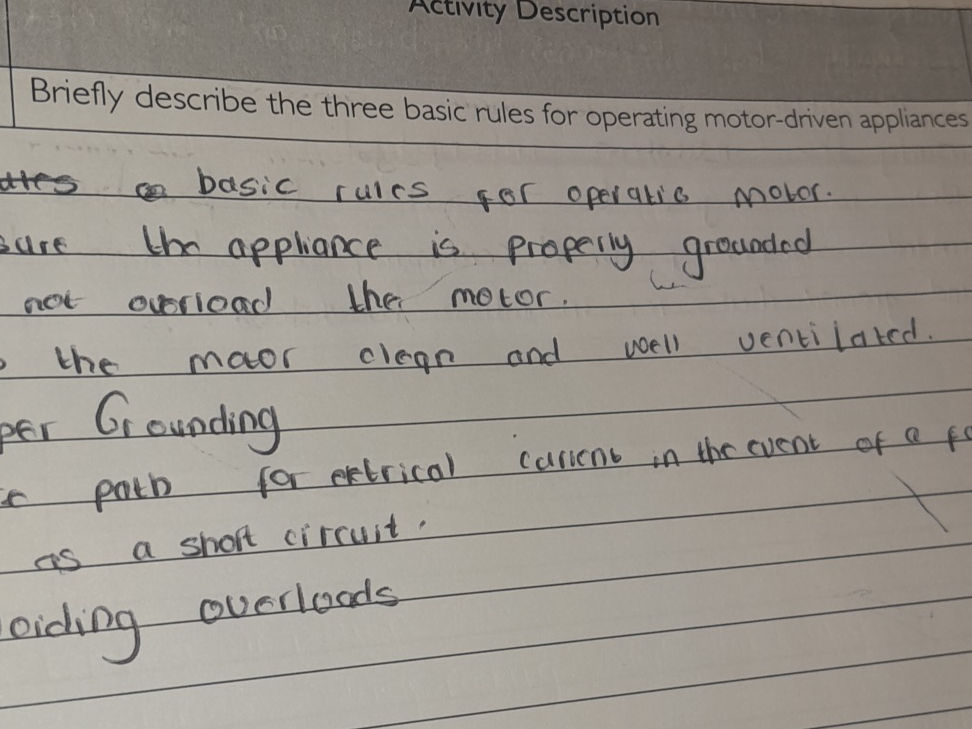 Activity Description
Briefly describe the three basic rules for operating motor-driven appliances
basic rules for operatic motor.
sure the appliance is properly grounded
not overload the motor.
the motor clean and well ventilated.
per Grounding
path for eletrical current in the event of a fa
as a short circuit.
oiding overloads